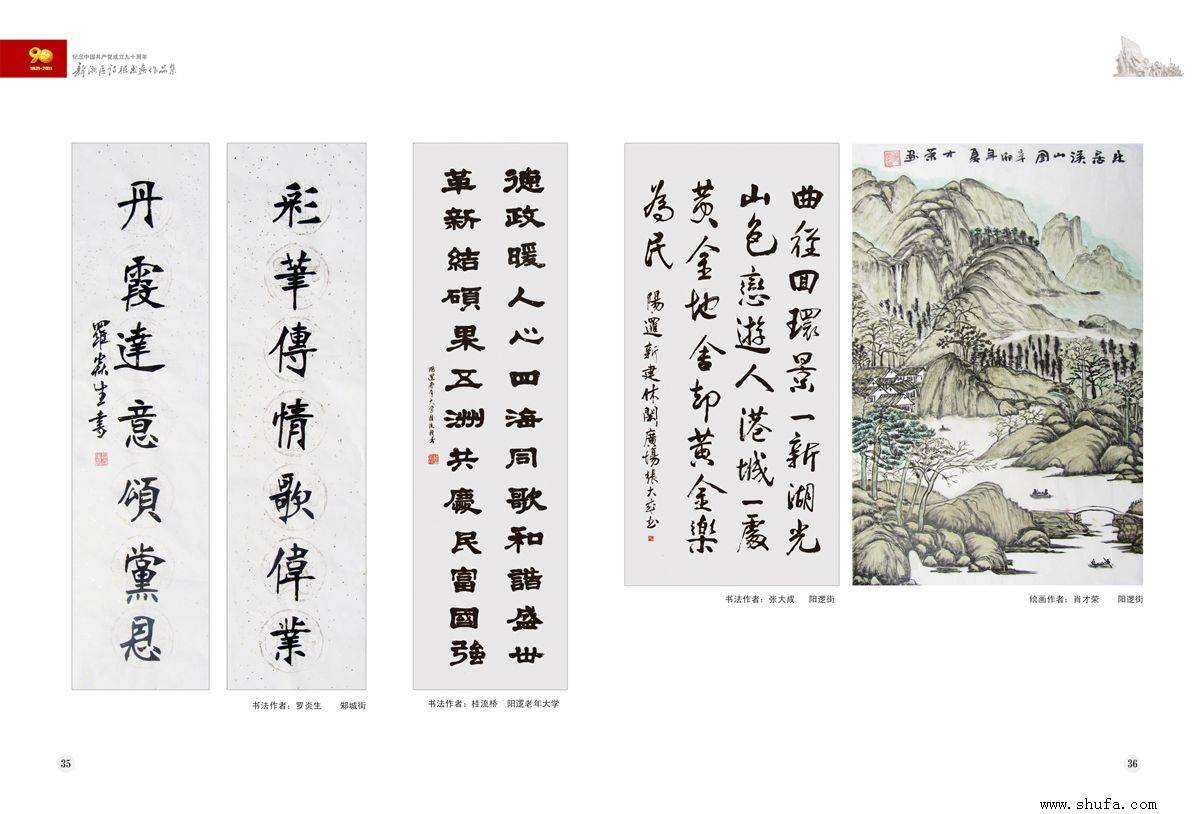 90
1921-2011
纪念中国共产党成立九十周年
彩筆傳情歌偉業
丹霞達意頌黨恩
羅炎生書
书法作者：罗炎生 邾城街
德政暖人心四海同歌和諧盛世
革新結碩果五洲共慶民富國強
书法作者：桂流桥 阳逻老年大学
曲徑回環景一新湖光
山色戀遊人港城一處
黄金地舍却黄金樂
為民
陽邏新建休閑廣場張大成書
书法作者：张大成 阳逻街
山居溪山图辛卯年夏才荣画
绘画作者：肖才荣 阳逻街
35
36
www.shufa.com